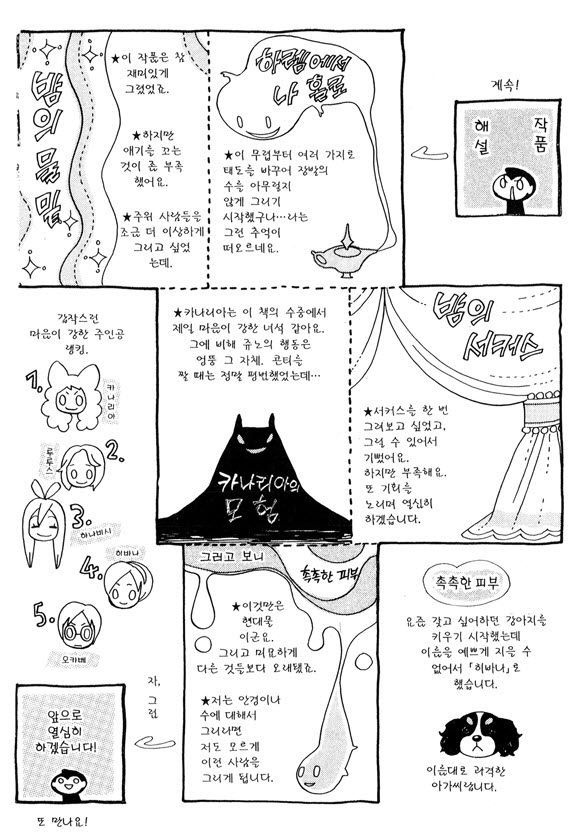 계속!
작품
해설
하렘에서
나 홀로
★이 무렵부터 여러 가지로
태도를 바꾸어 잠박의
수을 아무렇지
않게 그리기
시작했구나…라는
그런 추억이
떠오르네요.
밤의 물밑
★이 작품은 참
재미있게
그렸었죠.
★하지만
얘기를 꼬는
것이 좀 부족
했어요.
★주위 사람들을
조금 더 이상하게
그리고 싶었
는데.
밤의
서커스
★서커스를 한 번
그려보고 싶었고,
그릴 수 있어서
기뻤어요.
하지만 부족해요.
또 기회를
노리며 열심히
하겠습니다.
★카나리아는 이 책의 수중에서
제일 마음이 강한 녀석 같아요.
그에 비해 쥬노의 행동은
엉뚱 그 자체. 콘티를
짤 때는 정말 평범했었는데…
카나리아의
모험
갑작스런
마음이 강한 주인공
랭킹.
1.
카나리아
2.
루루스
3.
하나비시
4.
히바나
5.
오카베
그러고 보니
촉촉한 피부
★이것만은
현대물
이군요.
그리고 미묘하게
다른 것들보다 오래됐죠.
★저는 안경이나
수에 대해서
그리려면
저도 모르게
이런 사람을
그리게 됩니다.
촉촉한 피부
요즘 갖고 싶어하던 강아지를
키우기 시작했는데
이름을 예쁘게 지을 수
없어서 「히바나」로
했습니다.
이름대로 과격한
아가씨랍니다.
자,
그럼
앞으로
열심히
하겠습니다!
또 만나요!